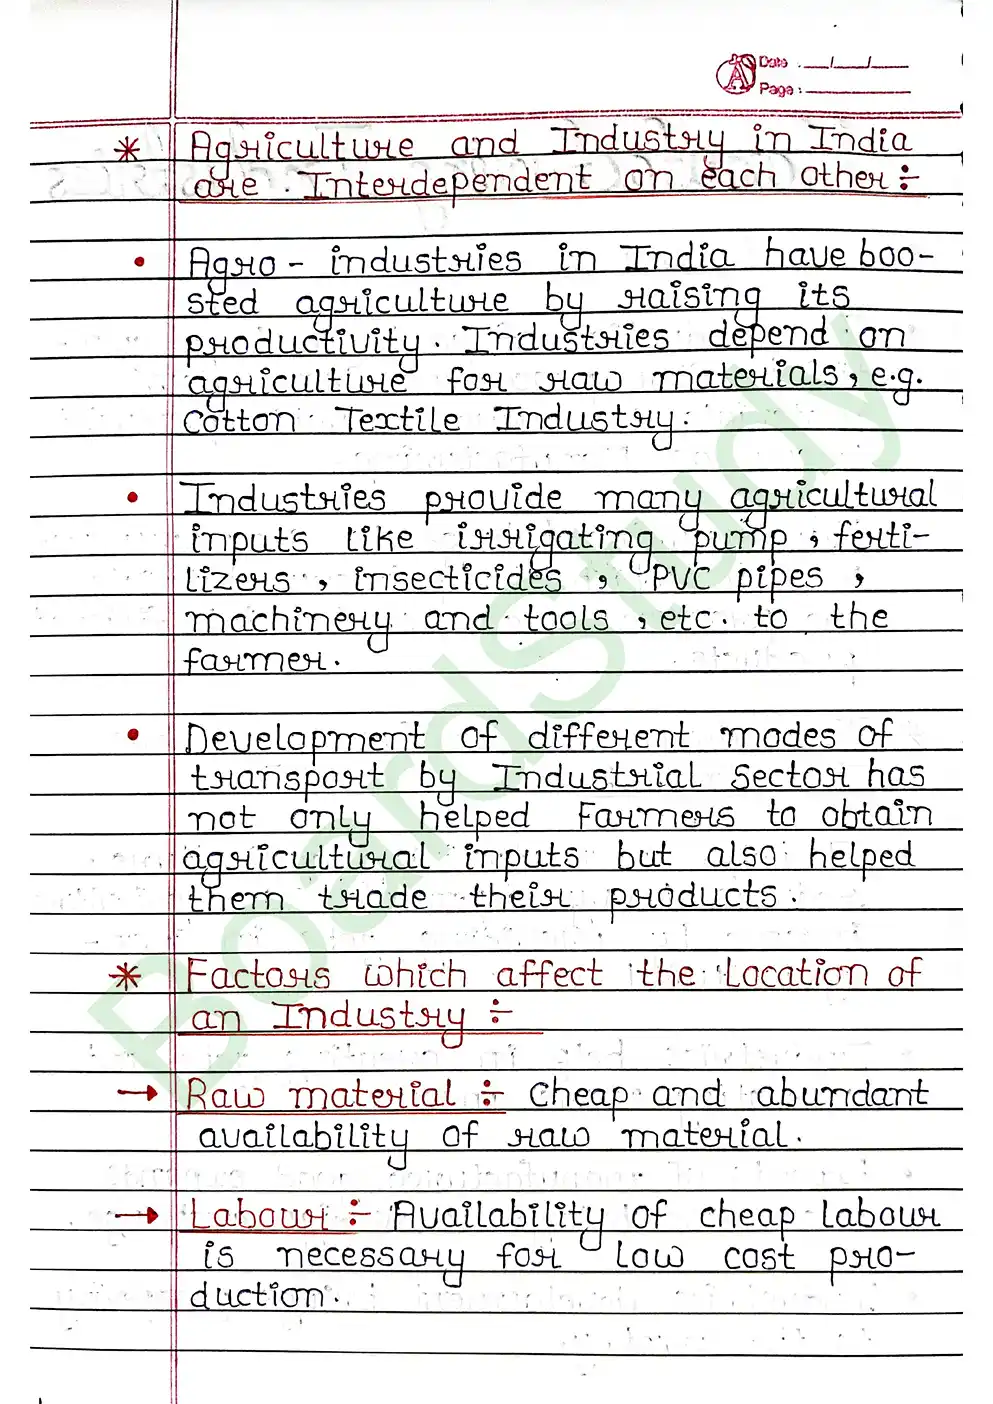 Date : __/__/__
Page : ________
* Agriculture and Industry in India
are Interdependent on each other ÷
• Agro - industries in India have boo-
sted agriculture by raising its
productivity. Industries depend on
agriculture for raw materials, e.g.
Cotton Textile Industry.
• Industries provide many agricultural
inputs like irrigating pump, ferti-
lizers, insecticides, PVC pipes,
machinery and tools, etc. to the
farmer.
• Development of different modes of
transport by Industrial Sector has
not only helped Farmers to obtain
agricultural inputs but also helped
them trade their products.
* Factors which affect the Location of
an Industry ÷
→ Raw material ÷ Cheap and abundant
availability of raw material.
→ Labour ÷ Availability of cheap labour
is necessary for low cost pro-
duction.
BoardStudy